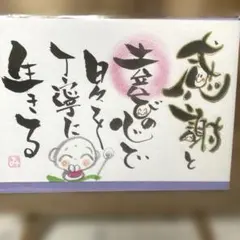 感謝と
喜びの心で
日々を
丁寧に
生きる